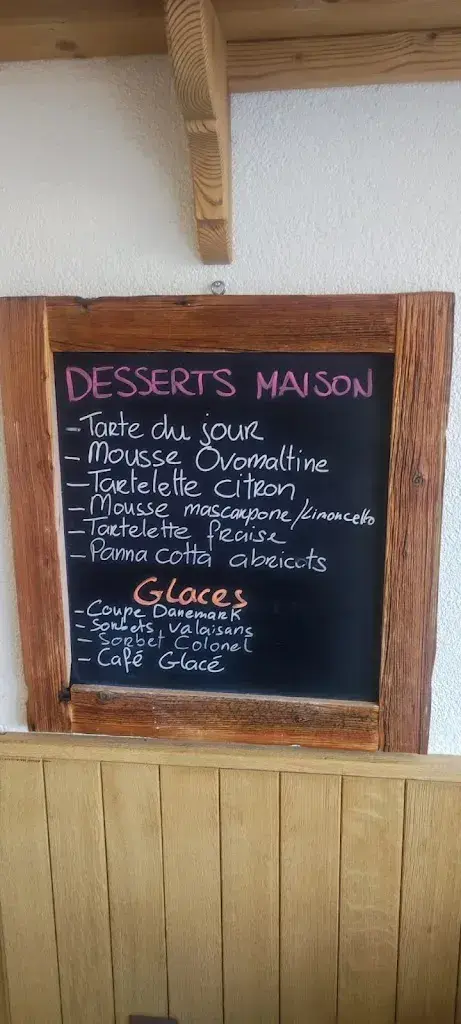 DESSERTS MAISON
- Tarte du jour
- Mousse Ovomaltine
- Tartelette citron
- Mousse mascarpone/Limoncello
- Tartelette fraise
- Panna cotta abricots
Glaces
- Coupe Danemark
- Sorbets valaisans
- Sorbet Colonel
- Café Glacé